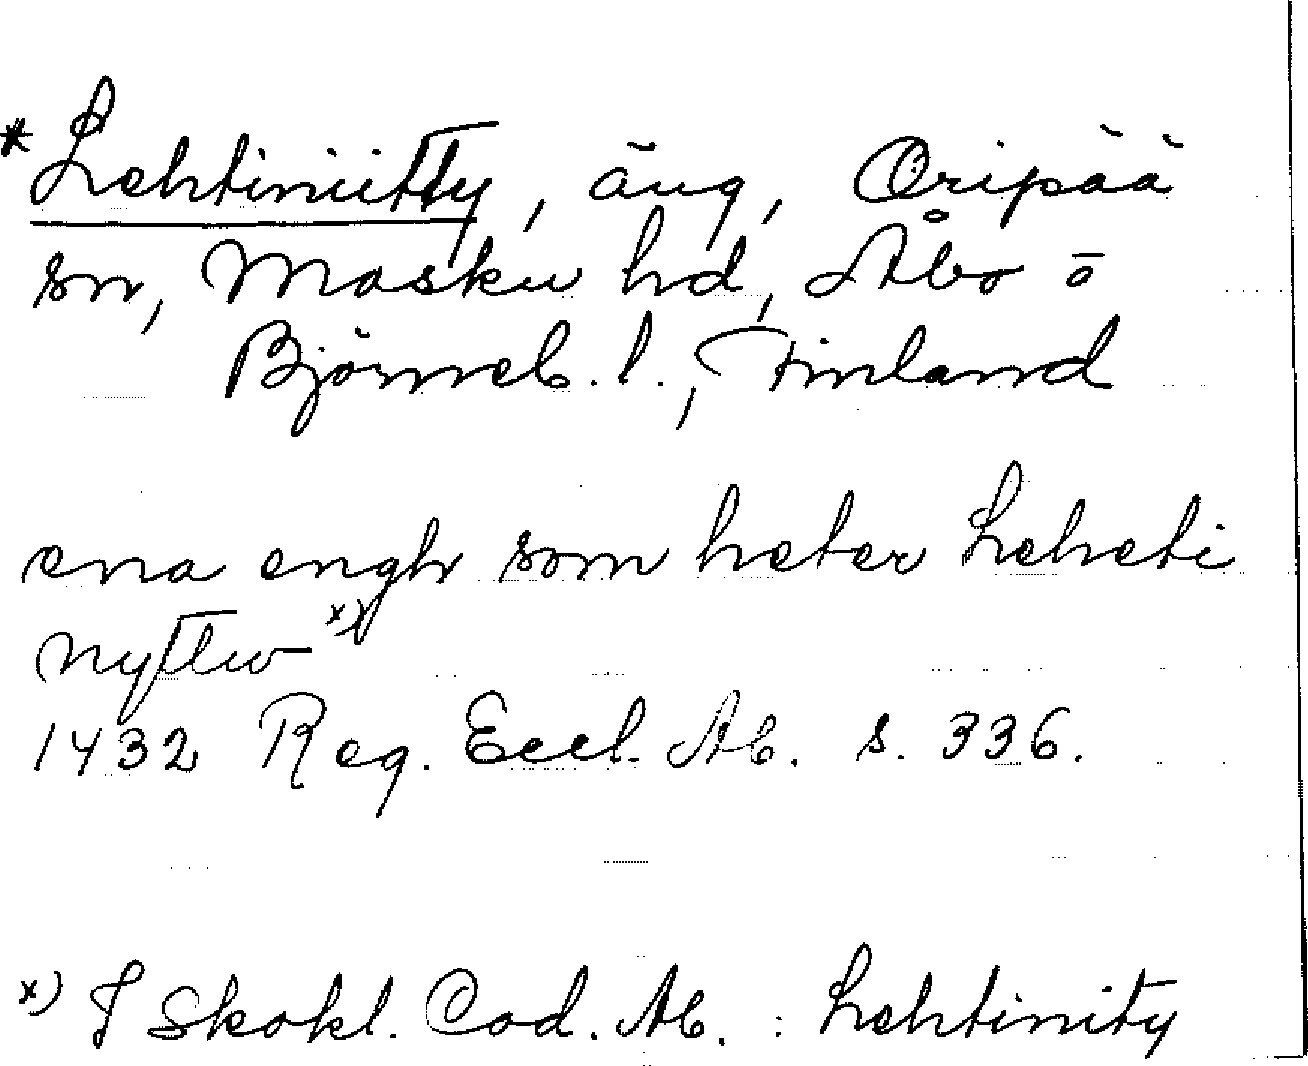 *Lehtiniitty, äng, Oripää
sn, Masku hd, Åbo o
Björneb. l., Finland
ena engh som heter Leheti
nyttw x)
1432 Reg. Eccl. Ab. s. 336.
x) I Skokl. Cod. Ab. : Lehtinity